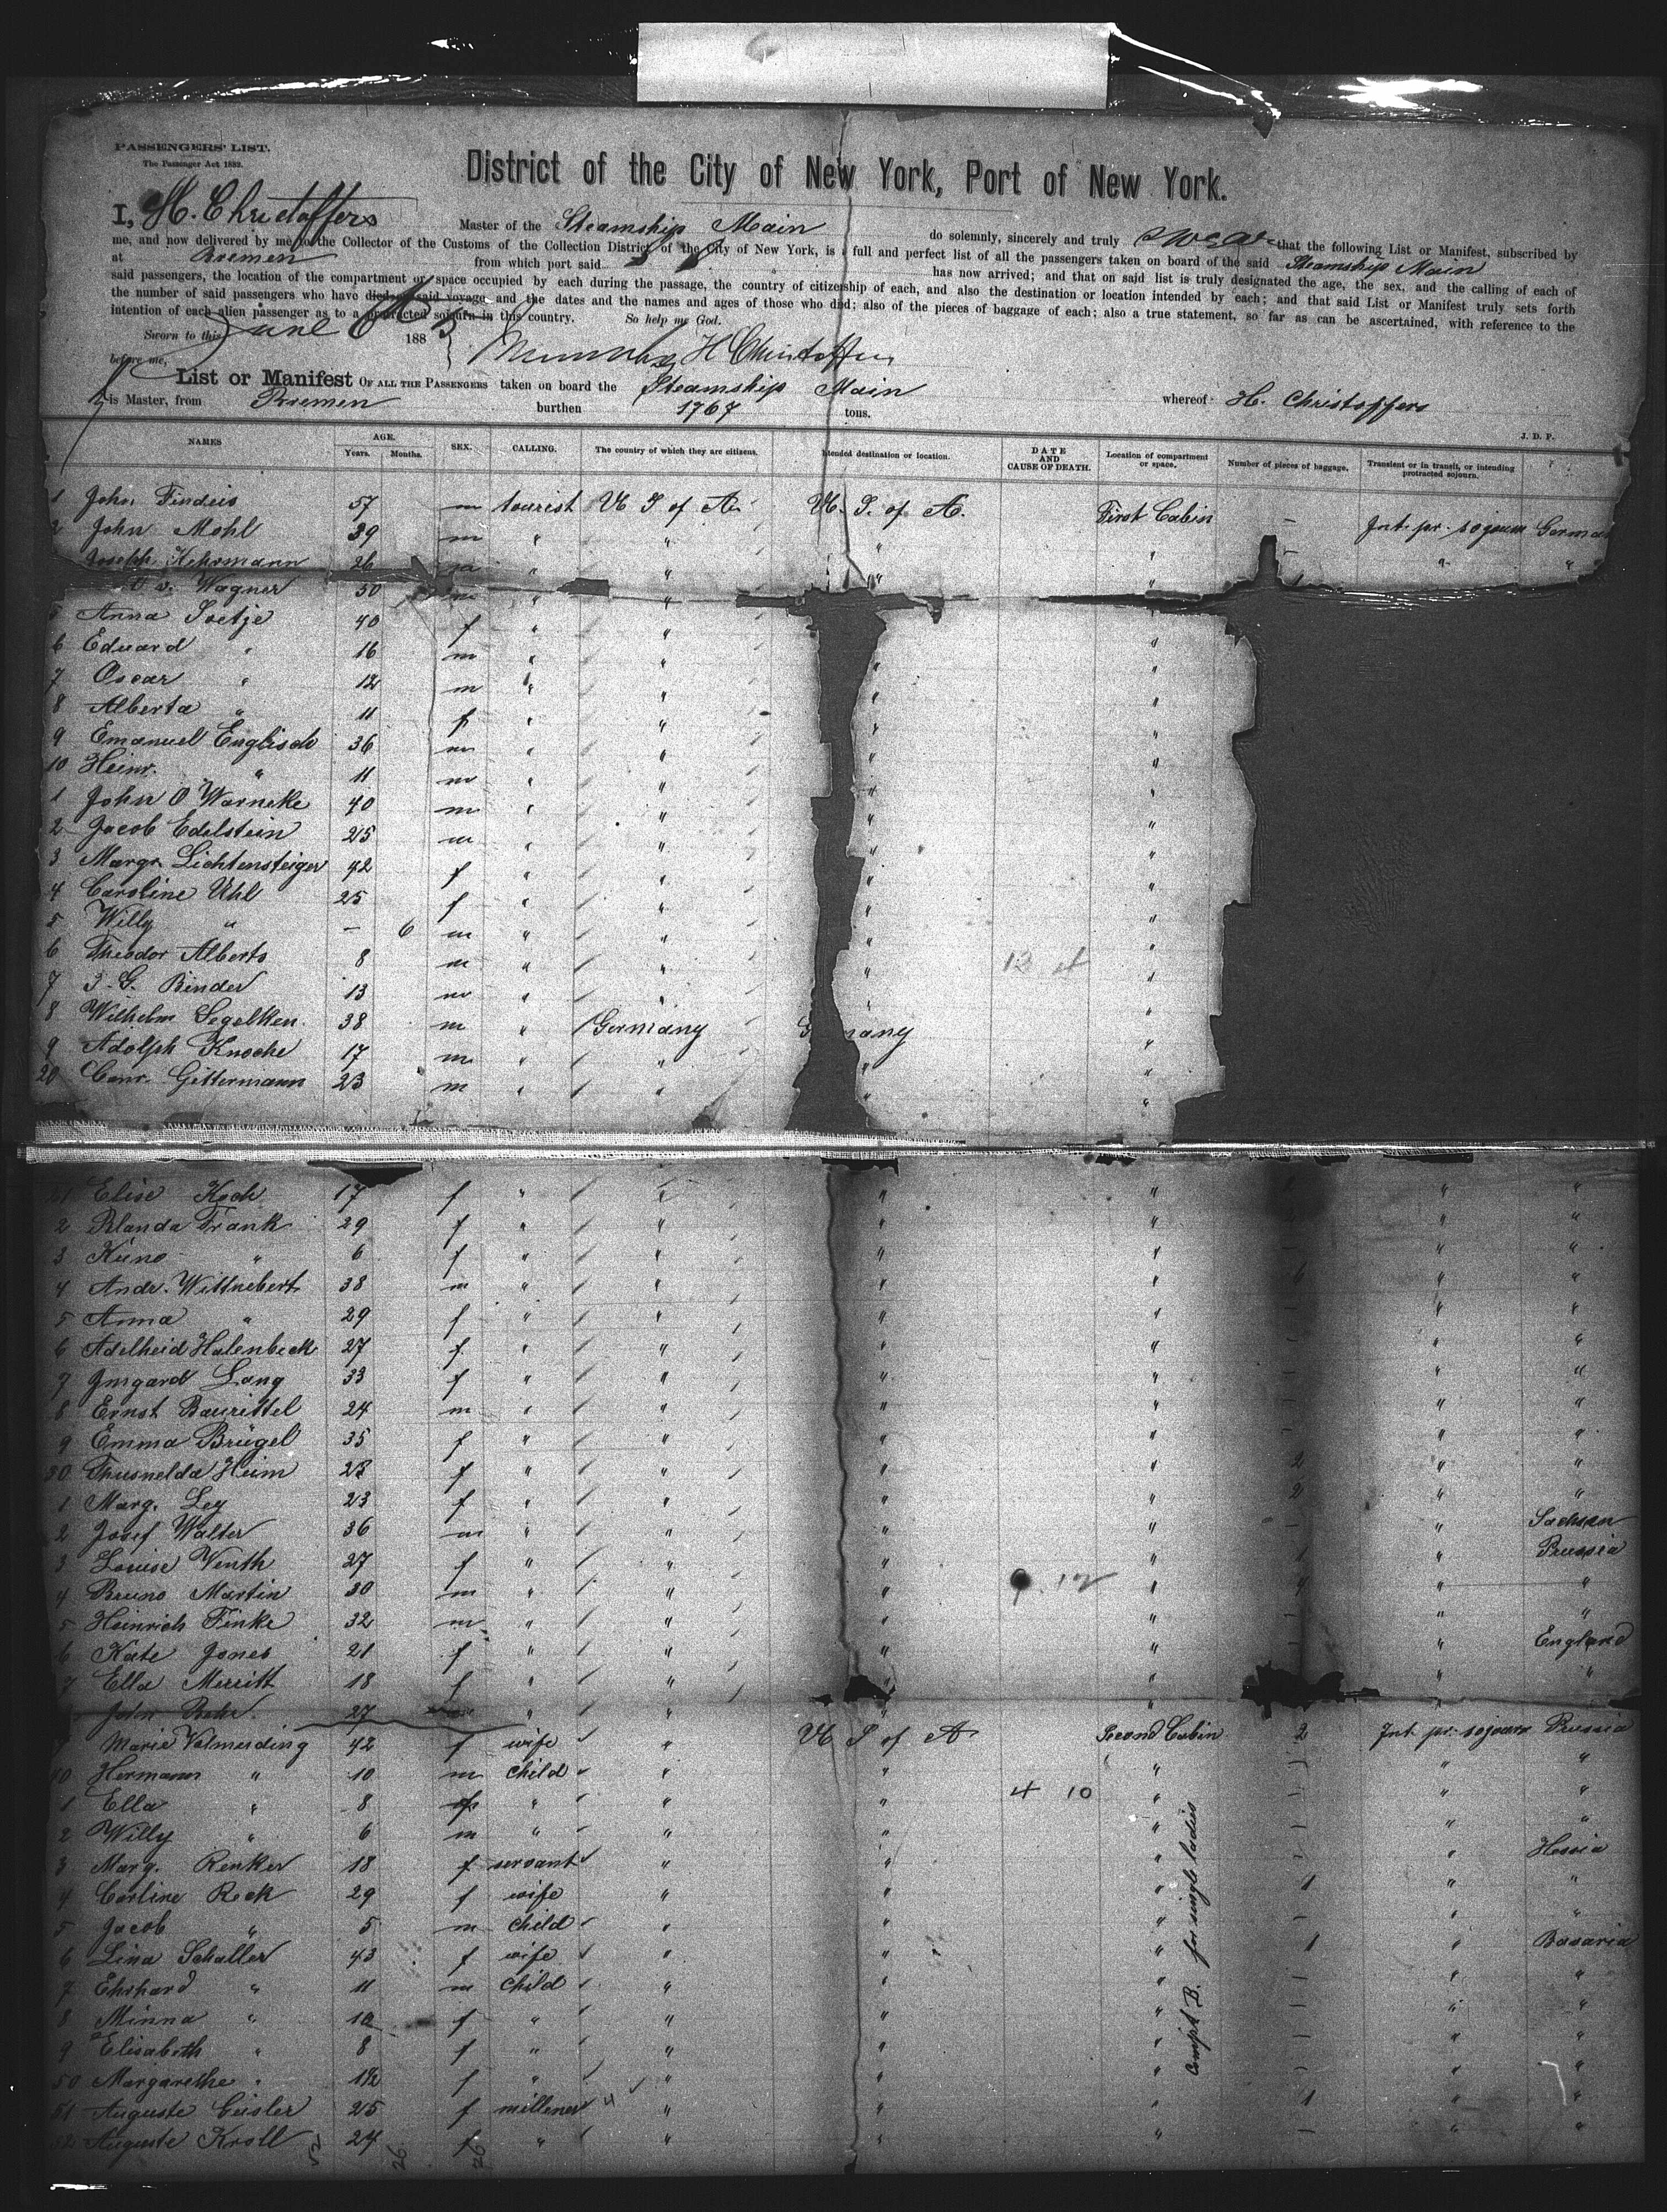 PASSENGERS' LIST.
The Passenger Act 1882.
District of the City of New York, Port of New York.
I, H. Christoffers Master of the Steamship Main do solemnly, sincerely and truly swear that the following List or Manifest, subscribed by
me, and now delivered by me to the Collector of the Customs of the Collection District of the City of New York, is a full and perfect list of all the passengers taken on board of the said Steamship Main
at Bremen from which port said has now arrived; and that on said list is truly designated the age, the sex, and the calling of each of
said passengers, the location of the compartment or space occupied by each during the passage, the country of citizenship of each, and also the destination or location intended by each; and that said List or Manifest truly sets forth
the number of said passengers who have died on said voyage, and the dates and the names and ages of those who died; also of the pieces of baggage of each; also a true statement, so far as can be ascertained, with reference to the
intention of each alien passenger as to a protracted sojourn in this country. So help me God.
Sworn to this June 6 188
before me, H Christoffers
List or Manifest OF ALL THE PASSENGERS taken on board the Steamship Main whereof H. Christoffers
is Master, from Bremen burthen 1767 tons.
J. D. P.
NAMES AGE. Years. Months. SEX. CALLING. The country of which they are citizens. Intended destination or location. DATE AND CAUSE OF DEATH. Location of compartment or space. Number of pieces of baggage. Transient or in transit, or intending protracted sojourn.
1 John Findeis 57 m tourist U S of A U. S. of A. First Cabin
2 John Mohl 39 m " " " – Int. pr. sojourn German
Joseph Kehrmann 26 m " " " " " "
O v. Wagner 50 m " " " "
5 Anna Soetje 40 f " " "
6 Eduard " 16 m " " " "
7 Oscar " 12 m " " " "
8 Alberta " 11 f " " " "
9 Emanuel Englisch 36 m " " " "
10 Heinr. " 11 m " " " "
1 John O Warneke 40 m " " " "
2 Jacob Edelstein 25 m " " " "
3 Margr. Lichtensteiger 42 f " " " "
4 Caroline Uhl 25 f " " " "
5 Willy " – 6 m " " " "
6 Theodor Alberts 8 m " " " "
7 J. G. Binder 13 m " " " "
8 Wilhelm Segelken 38 m " Germany Germany "
9 Adolph Knoche 17 m " " " "
20 Conr. Gittermann 23 m " " " "
21 Elise Koch 17 f " " " " " "
2 Blanda Frank 29 f " " " " " "
3 Kuno " 6 f " " " " – " "
4 Andr. Wittnebert 38 m " " " " 6 " "
5 Anna " 29 f " " " " – " "
6 Adelheid Halenbeck 27 f " " " " – " "
7 Irmgard Lang 33 f " " " " – " "
8 Ernst Baurittel 24 m " " " " – " "
9 Emma Brügel 35 f " " " " – " "
30 Thusnelda Heim 23 f " " " " 2 " "
1 Marg. Ley 23 f " " " " 2 " "
2 Josef Walter 36 m " " " " – " Sachsen
3 Louise Venth 27 f " " " " 1 " Prussia
4 Bruno Martin 30 m " " " " 4 " "
5 Heinrich Finke 32 m " " " " – " "
6 Kate Jones 21 f " " " " – " England
7 Ella Merritt 18 f " " " " " "
John Behr. 27 " " " "
Marie Volmerding 42 f wife " U S of A Second Cabin 2 Int. pr. sojourn Prussia
40 Hermann " 10 m child " " " – " "
1 Ella " 8 f " " " 4 10 " – " "
2 Willy " 6 m " " " " – " "
3 Marg. Renker 18 f servant " " " – " Hessia
4 Carline Reck 29 f wife " " " 1 " "
5 Jacob " 5 m child " " " – " "
6 Lina Schaller 43 f wife " " " 1 " Bavaria
7 Ehrhard " 11 m child " " " – " "
8 Minna " 10 f " " " " – " "
9 Elisabeth " 8 f " " " " – " "
50 Margarethe " 1½ f " " " " – " "
51 Auguste Geisler 25 f millener " " " 1 " "
52 Auguste Kroll 24 f " " " – " "
Compt B. for single ladies
52 26 26